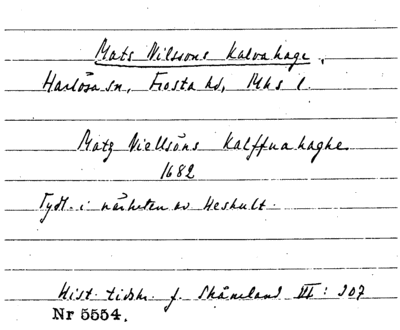 Mats Nilssons Kalvahage.
Harlösa sn, Frosta hd, Mhs l.
Matz Niellsöns Kalffuahaghe
1682
Tydl. i närheten av Heshult.
Hist. tidskr. f. Skåneland VII: 207
Nr 5554.